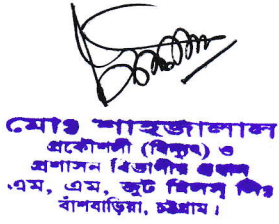 মোঃ শাহজালাল
প্রকৌশলী (বিদ্যুৎ) ও
প্রশাসন বিভাগীয় প্রধান
এম, এম, জুট মিলস্ লিঃ
বাঁশবাড়িয়া, চট্টগ্রাম।